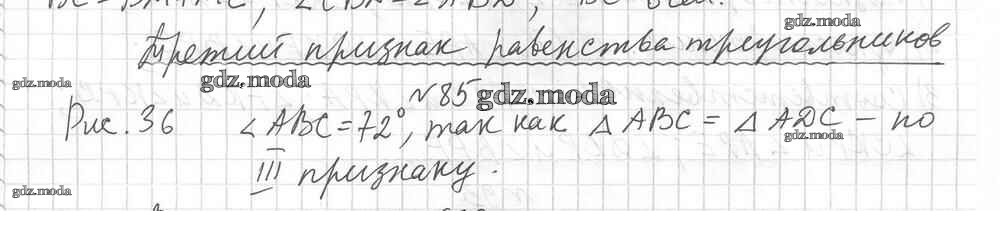 Третий признак равенства треугольников
gdz.moda
gdz.moda
gdz.moda
№85
gdz.moda
Рис. 36 ∠ABC = 72°, так как △ABC = △ADC – по
gdz.moda
III признаку.
gdz.moda